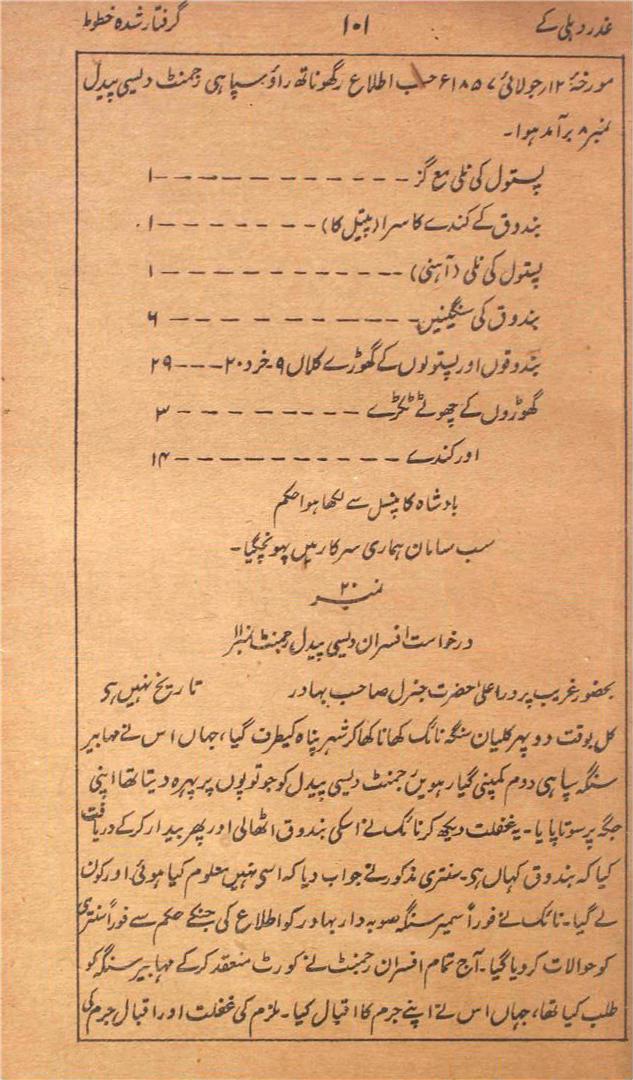 غدر دہلی کے ۱۰۱ گرفتار شدہ خطوط
مورخہٴ ۱۲ رجولائی ۱۸۵۷ء حسب اطلاع رگھوناتھ راؤ سپاہی رجمنٹ دیسی پیدل
نمبر ۸ برآمد ہوا۔
پستول کی نلی مع گز ----------- ۱
بندوق کے کندے کا سرا (پیتل کا) ------- ۱
پستول کی نلی (آہنی) ------------ ۱
بندوق کی سنگینیں ---------- ۶
بندوقوں اور پستولوں کے گھوڑے کلاں ۹۔ خرد ۲۰ --- ۲۹
گھوڑوں کے چھوٹے ٹکڑے -------- ۳
اور کندے ---------- ۱۴
بادشاہ کا پنسل سے لکھا ہوا حکم
سب سامان ہماری سرکار میں پہونچ گیا۔
نمبر ۲۰
درخواست افسران دیسی پیدل رجمنٹ نمبر ۱۱
بحضور غریب پرور اعلیٰ حضرت جنرل صاحب بہادر تاریخ نہیں ہی
کل بوقت دوپہر کلیان سنگہ نائک کھانا کھا کر شہر پناہ کیطرف گیا، جہاں اس نے مہابیر
سنگہ سپاہی دوم کمپنی گیارہویں رجمنٹ دیسی پیدل کو جو توپوں پر پہرہ دیتا تھا اپنی
جگہ پر سوتا پایا۔ یہ غفلت دیکھ کر نائک نے اسکی بندوق اٹھالی اور پھر بیدار کرکے دریافت
کیا کہ بندوق کہاں ہی۔ سنتری مذکور نے جواب دیا کہ اسی نہیں معلوم کیا ہوئی، اور کون
لے گیا۔ نائک نے فوراً سمیر سنگہ صوبہ دار بہادر کو اطلاع کی جنکے حکم سے فوراً سنتری
کو حوالات کردیا گیا۔ آج تمام افسران رجمنٹ نے کورٹ منعقد کرکے مہابیر سنگہ کو
طلب کیا تھا، جہاں اس نے اپنے جرم کا اقبال کیا۔ ملزم کی غفلت اور اقبال جرم کی